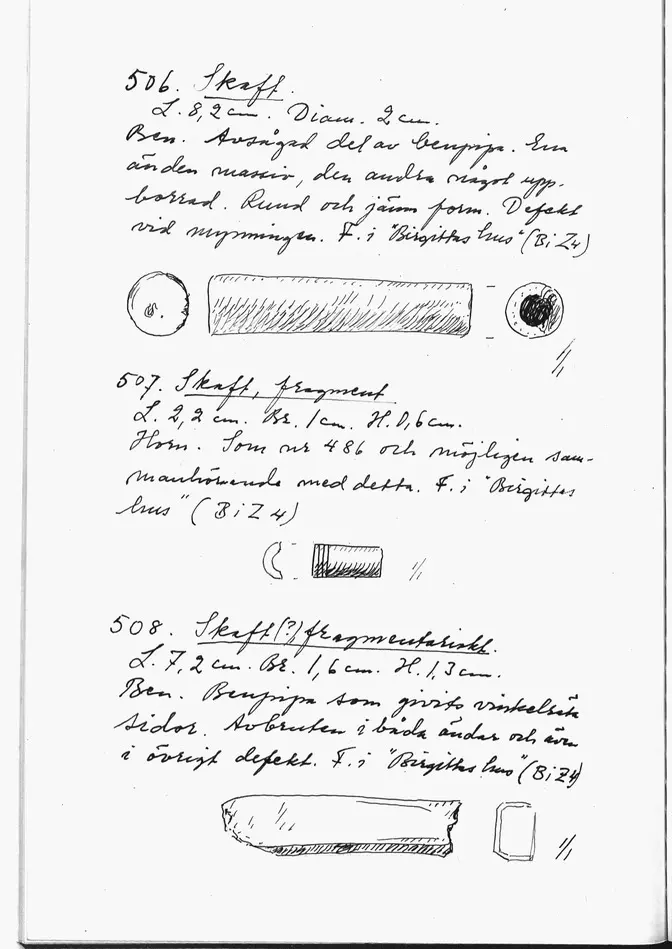 506. Skaft.
L. 8,2 cm. Diam. 2 cm.
Ben. Avsågad del av benpipa. Ena
änden massiv, den andra något upp-
borrad. Rund och jämn form. Defekt
vid mynningen. F. i "Birgittas hus" (Bi Z4)
1/1
507. Skaft, fragment
L. 2,2 cm. Br. 1 cm. H. 0,6 cm.
Horn. Som nr 486 och möjligen sam-
manhörande med detta. F. i "Birgittas
hus" (Bi Z 4)
1/1
508. Skaft(?), fragmentariskt.
L. 7,2 cm. Br. 1,6 cm. H. 1,3 cm.
Ben. Benpipa som givits vinkelräta
sidor. Avbruten i båda ändar och även
i övrigt defekt. F. i "Birgittas hus" (Bi Z4)
1/1